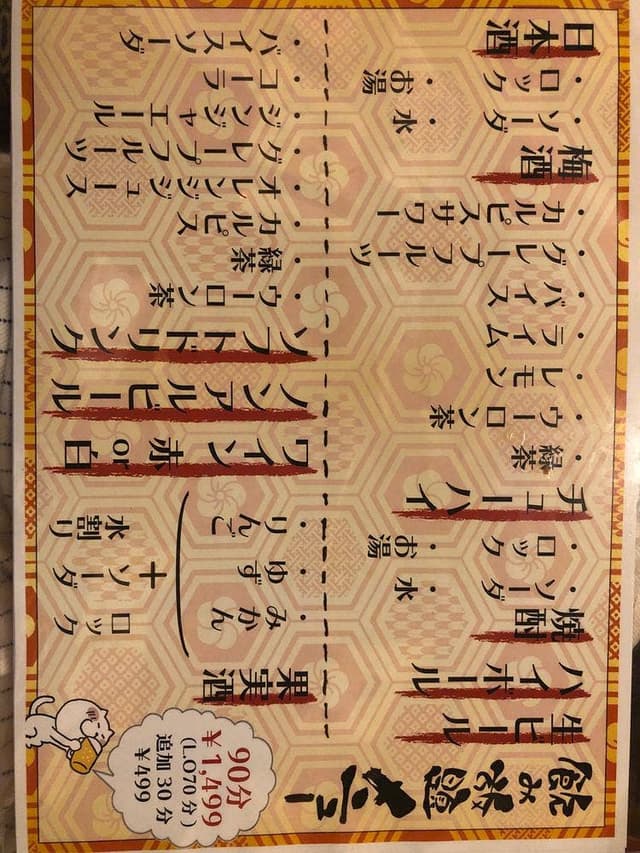 飲み放題メニュー
生ビール
ハイボール
焼酎
・ソーダ ・水
・ロック ・お湯
チューハイ
・緑茶
・ウーロン茶
・レモン
・ライム
・バイス
・グレープフルーツ
・カルピスサワー
梅酒
・ソーダ ・水
・ロック ・お湯
日本酒
90分
¥1,499
(L.O70分)
追加30分
¥499
果実酒
・みかん
・ゆず
・りんご
ロック
+ソーダ
水割り
ワイン 赤 or 白
ノンアルビール
ソフトドリンク
・ウーロン茶
・緑茶
・カルピス
・オレンジジュース
・グレープフルーツ
・ジンジャエール
・コーラ
・バイスソーダ